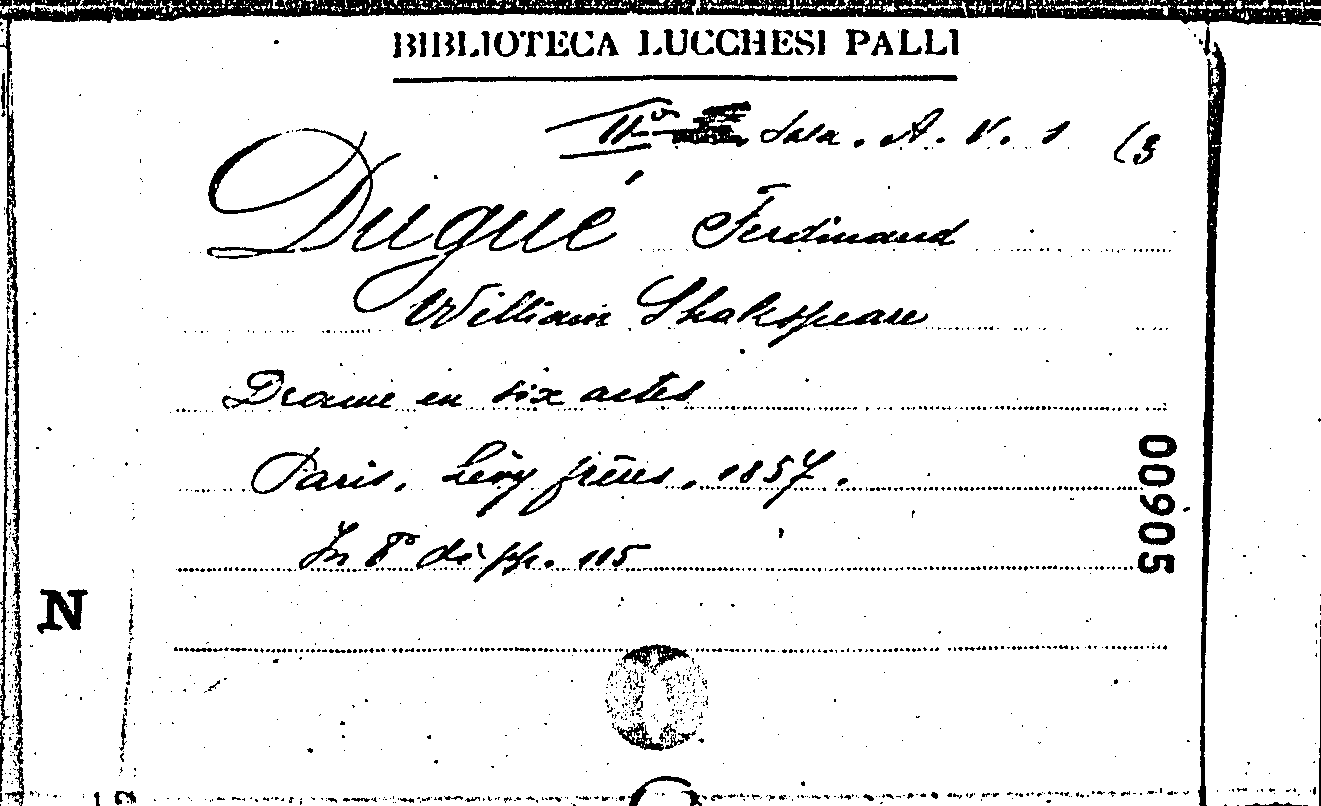 BIBLIOTECA LUCCHESI PALLI
IIª Sala. A. V. 1 (3
Dugué Ferdinand
William Shakspeare
Drame en six actes
Paris, Lévy frères, 1857.
In 8º di pp. 115
00905
N